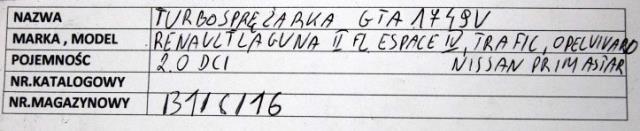 NAZWA TURBOSPRĘŻARKA GTA 1749V
MARKA, MODEL RENAULT LAGUNA II FL ESPACE IV, TRAFIC, OPEL VIVARO
POJEMNOŚĆ 2.0 DCI NISSAN PRIMASTAR
NR.KATALOGOWY
NR.MAGAZYNOWY B1/C/16